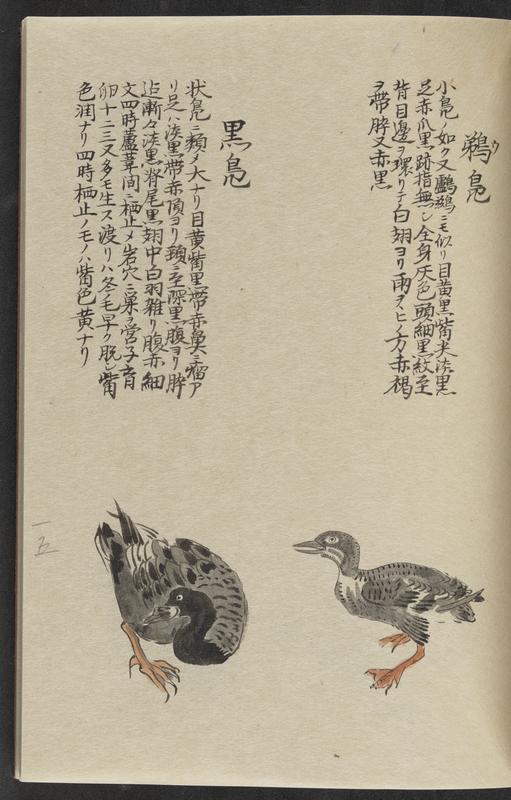 鵜鳧
ウ
小鳧ノ如ク又鸕鷀ニモ似リ目黄黒觜尖淡黒
足赤爪黒跡指無シ全身灰色頭細黒紋至
背目邊ヲ環リテ白翅ヨリ雨ヲヒノ方赤褐
ヲ帶脺又赤黒
黒鳧
状鳧ニ類メ大ナリ目黄觜黒帶赤鼻ニ瘤ア
リ足ハ淡黒帶赤頂ヨリ頚ニ至深黒腹ヨリ脺
迠漸々淡黒脊尾黒翅中白羽雑リ腹赤細
文四時蘆葦間ニ栖止メ岩穴ニ巣ヲ營子育
卵十二三又多モ生ス渡リハ冬ノ毛早ク脱シ觜
色潤ナリ四時栖止ノモノハ觜色黄ナリ
一五